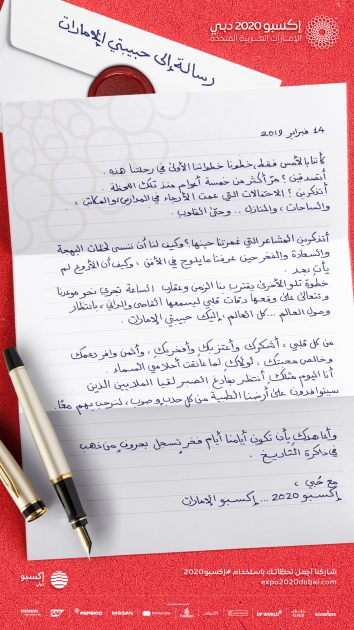 إكسبو 2020 دبي
الإمارات العربية المتحدة
رسالة إلى حبيبتي الإمارات
14 فبراير 2019
كأننا بالأمس فقط، خطونا خطواتنا الأولى في رحلتنا هذه.
أتصدقين؟ مرّ أكثر من خمسة أعوام منذ تلك اللحظة.
أتذكرين؟ الاحتفالات التي عمت الأرجاء في المدارس والمكاتب،
والساحات، والمنازل .. وحتى القلوب.
أتذكرين المشاعر التي غمرتنا حينها؟ وكيف لنا أن ننسى لحظات البهجة
والسعادة والفخر حين عرفنا ما يلوح في الأفق، وكيف أن الأروع لم
يأتِ بعد.
خطوة تلو الأخرى يقترب بنا الزمن وعقارب الساعة تجري نحو موعدنا
وتتعالى على وقعها دقات قلبي ليسمعها القاصي والداني، بانتظار
وصول العالم ... كل العالم، إليك حبيبتي الإمارات.
من كل قلبي، أشكرك وأعتز بك وأفخر بك، وأثمن وافر دعمك
وخالص محبتك، لولاك لما عانقت أحلامي السماء.
أنا اليوم مثلك أنتظر بفارغ الصبر لقيا الملايين الذين
سيتوافدون على أرضنا الطيبة من كل حدب وصوب، لنرحب بهم معًا.
وأعاهدك بأن تكون أيامنا أيام فخر تسجل بحروفٍ من ذهب
في ذاكرة التاريخ.
مع حُبي،
إكسبو 2020 ... إكسبو الإمارات
شاركنا أجمل لحظاتك باستخدام #إكسبو2020
expo2020dubai.com
إكسبو
SIEMENS
SAP
PEPSICO
NISSAN
DP WORLD
CISCO
accenture